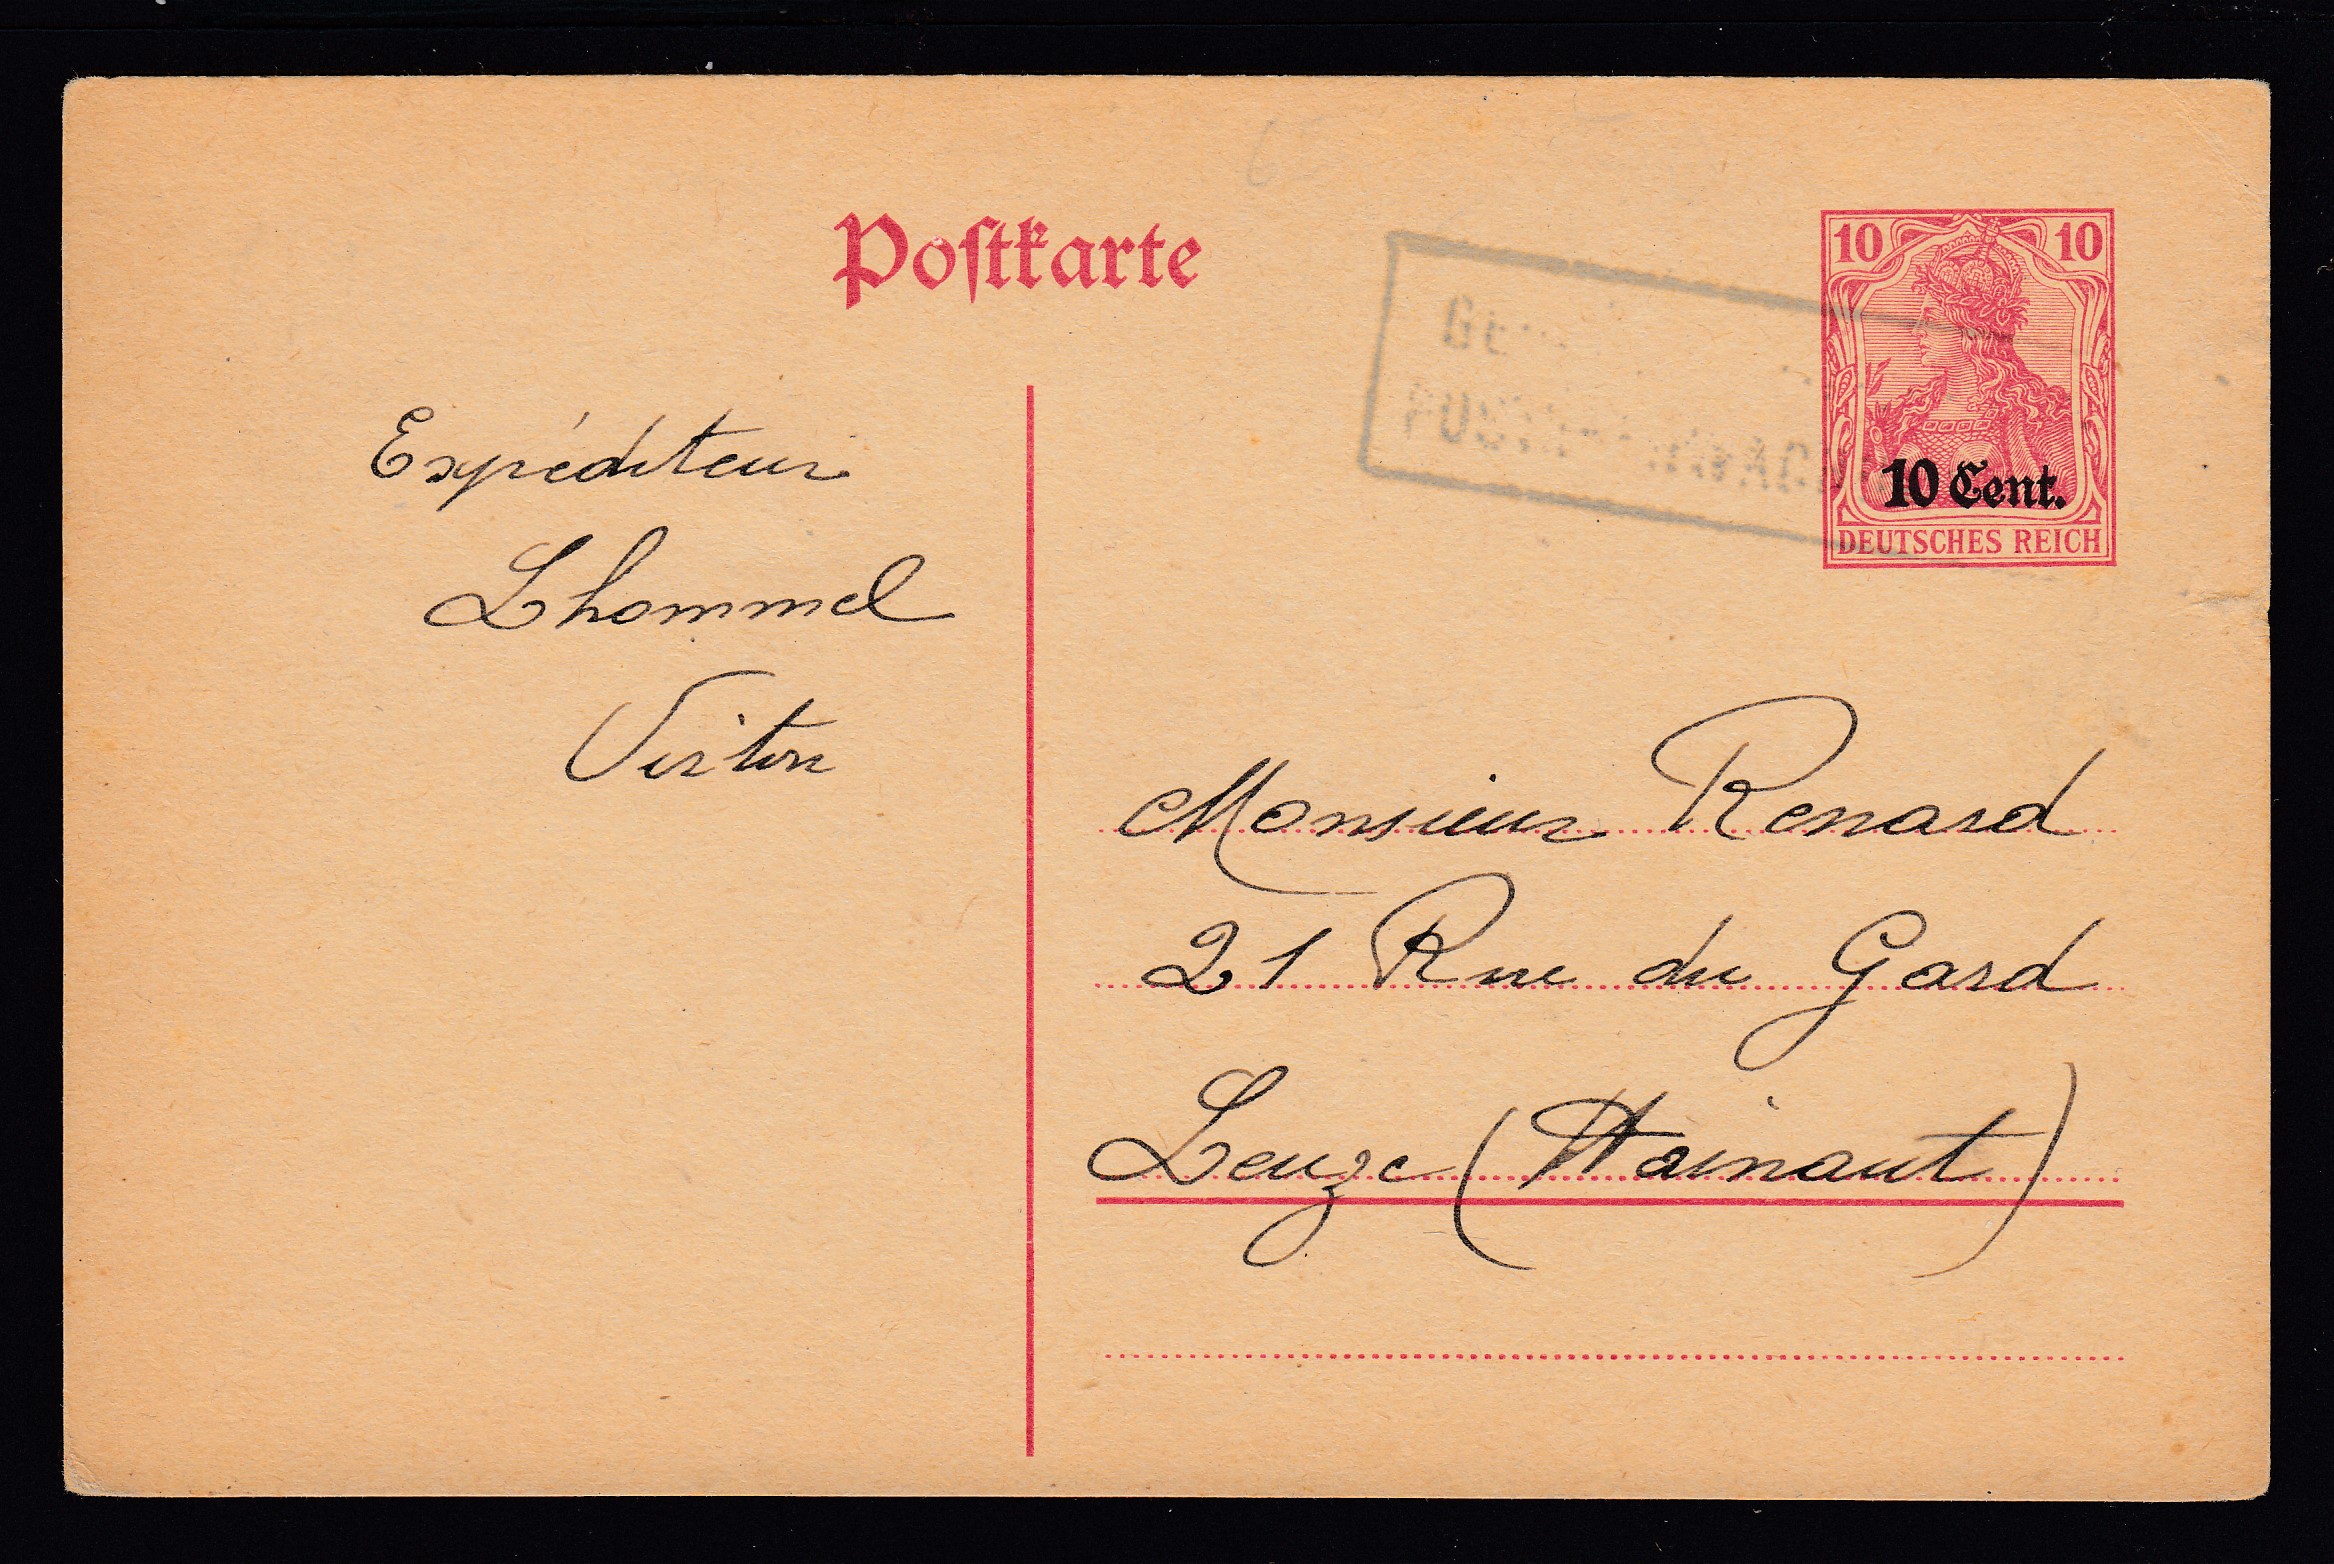 Postkarte
10 10
10 Cent.
DEUTSCHES REICH
Expéditeur
Lhommel
Virton
Monsieur Renard
21 Rue du Gard
Leuze (Hainaut)